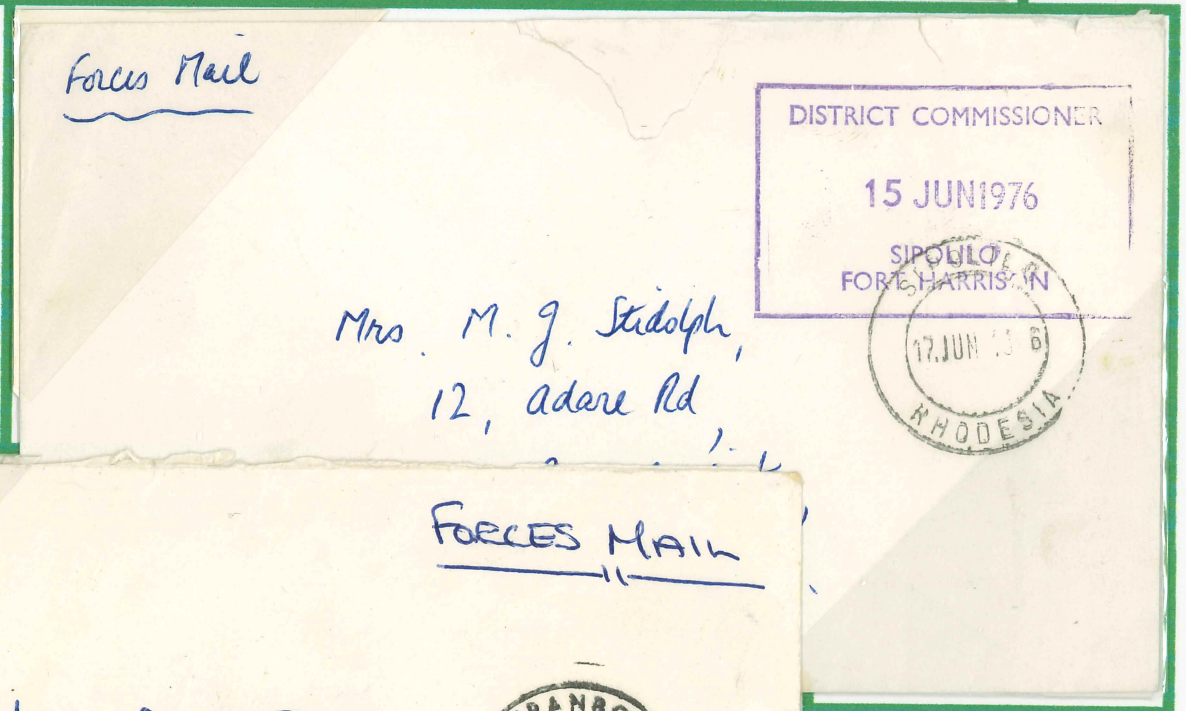 Forces Mail
DISTRICT COMMISSIONER
15 JUN 1976
SIPOLILO
FORT HARRISON
SIPOLILO
17.JUN 6
RHODESIA
Mrs. M. J. Stidolph,
12, Adare Rd,
FORCES MAIL